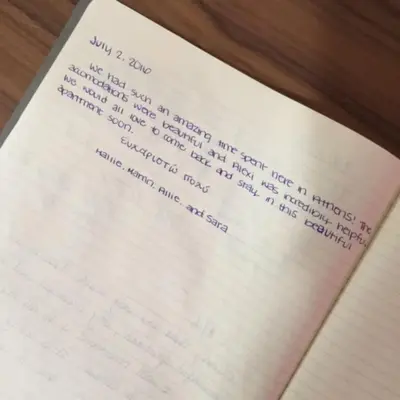 July 2, 2016
We had such an amazing time spent here in Athens! The
accomodations were beautiful and Alexi was incredibly helpful,
We would all love to come back and stay in this beautiful
apartment soon.
Ευχαριστώ πολύ
Hallie, Kamri, Allie, and Sara